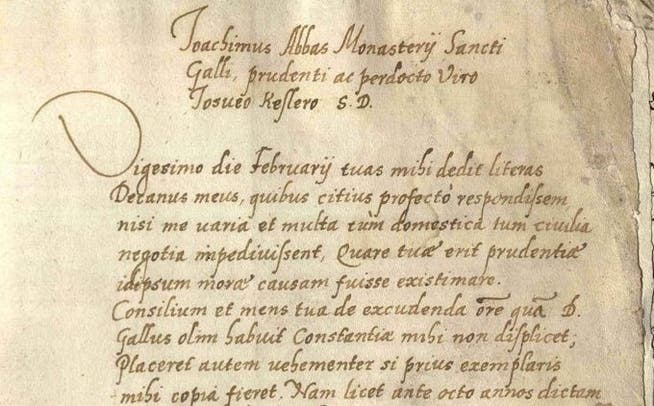 Joachimus Abbas Monasterij Sancti
Galli, prudenti ac perdocto Viro
Josueo Keslero S.D.
Vigesimo die Februarij tuas mihi dedit literas
Decanus meus, quibus citius profectò respondissem
nisi me varia et multa tum domestica tum civilia
negotia impedivissent, Quare tuæ erit prudentiæ
idipsum moræ causam fuisse existimare.
Consilium et mens tua de excudenda ore quā D.
Gallus olim habuit Constantiæ mihi non displicet;
Placeret autem vehementer si prius exemplaris
mihi copia fieret. Nam licet ante octo annos dictam